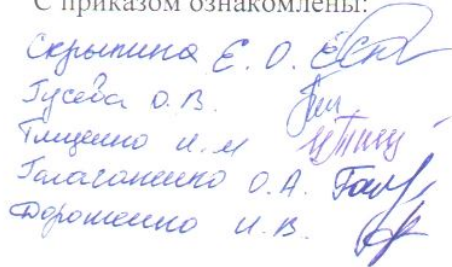 С приказом ознакомлены:
Скрыпина Е. О.
Гусева О. В.
Тищенко И. М
Галаганенко О. А.
Дорошенко И. В.